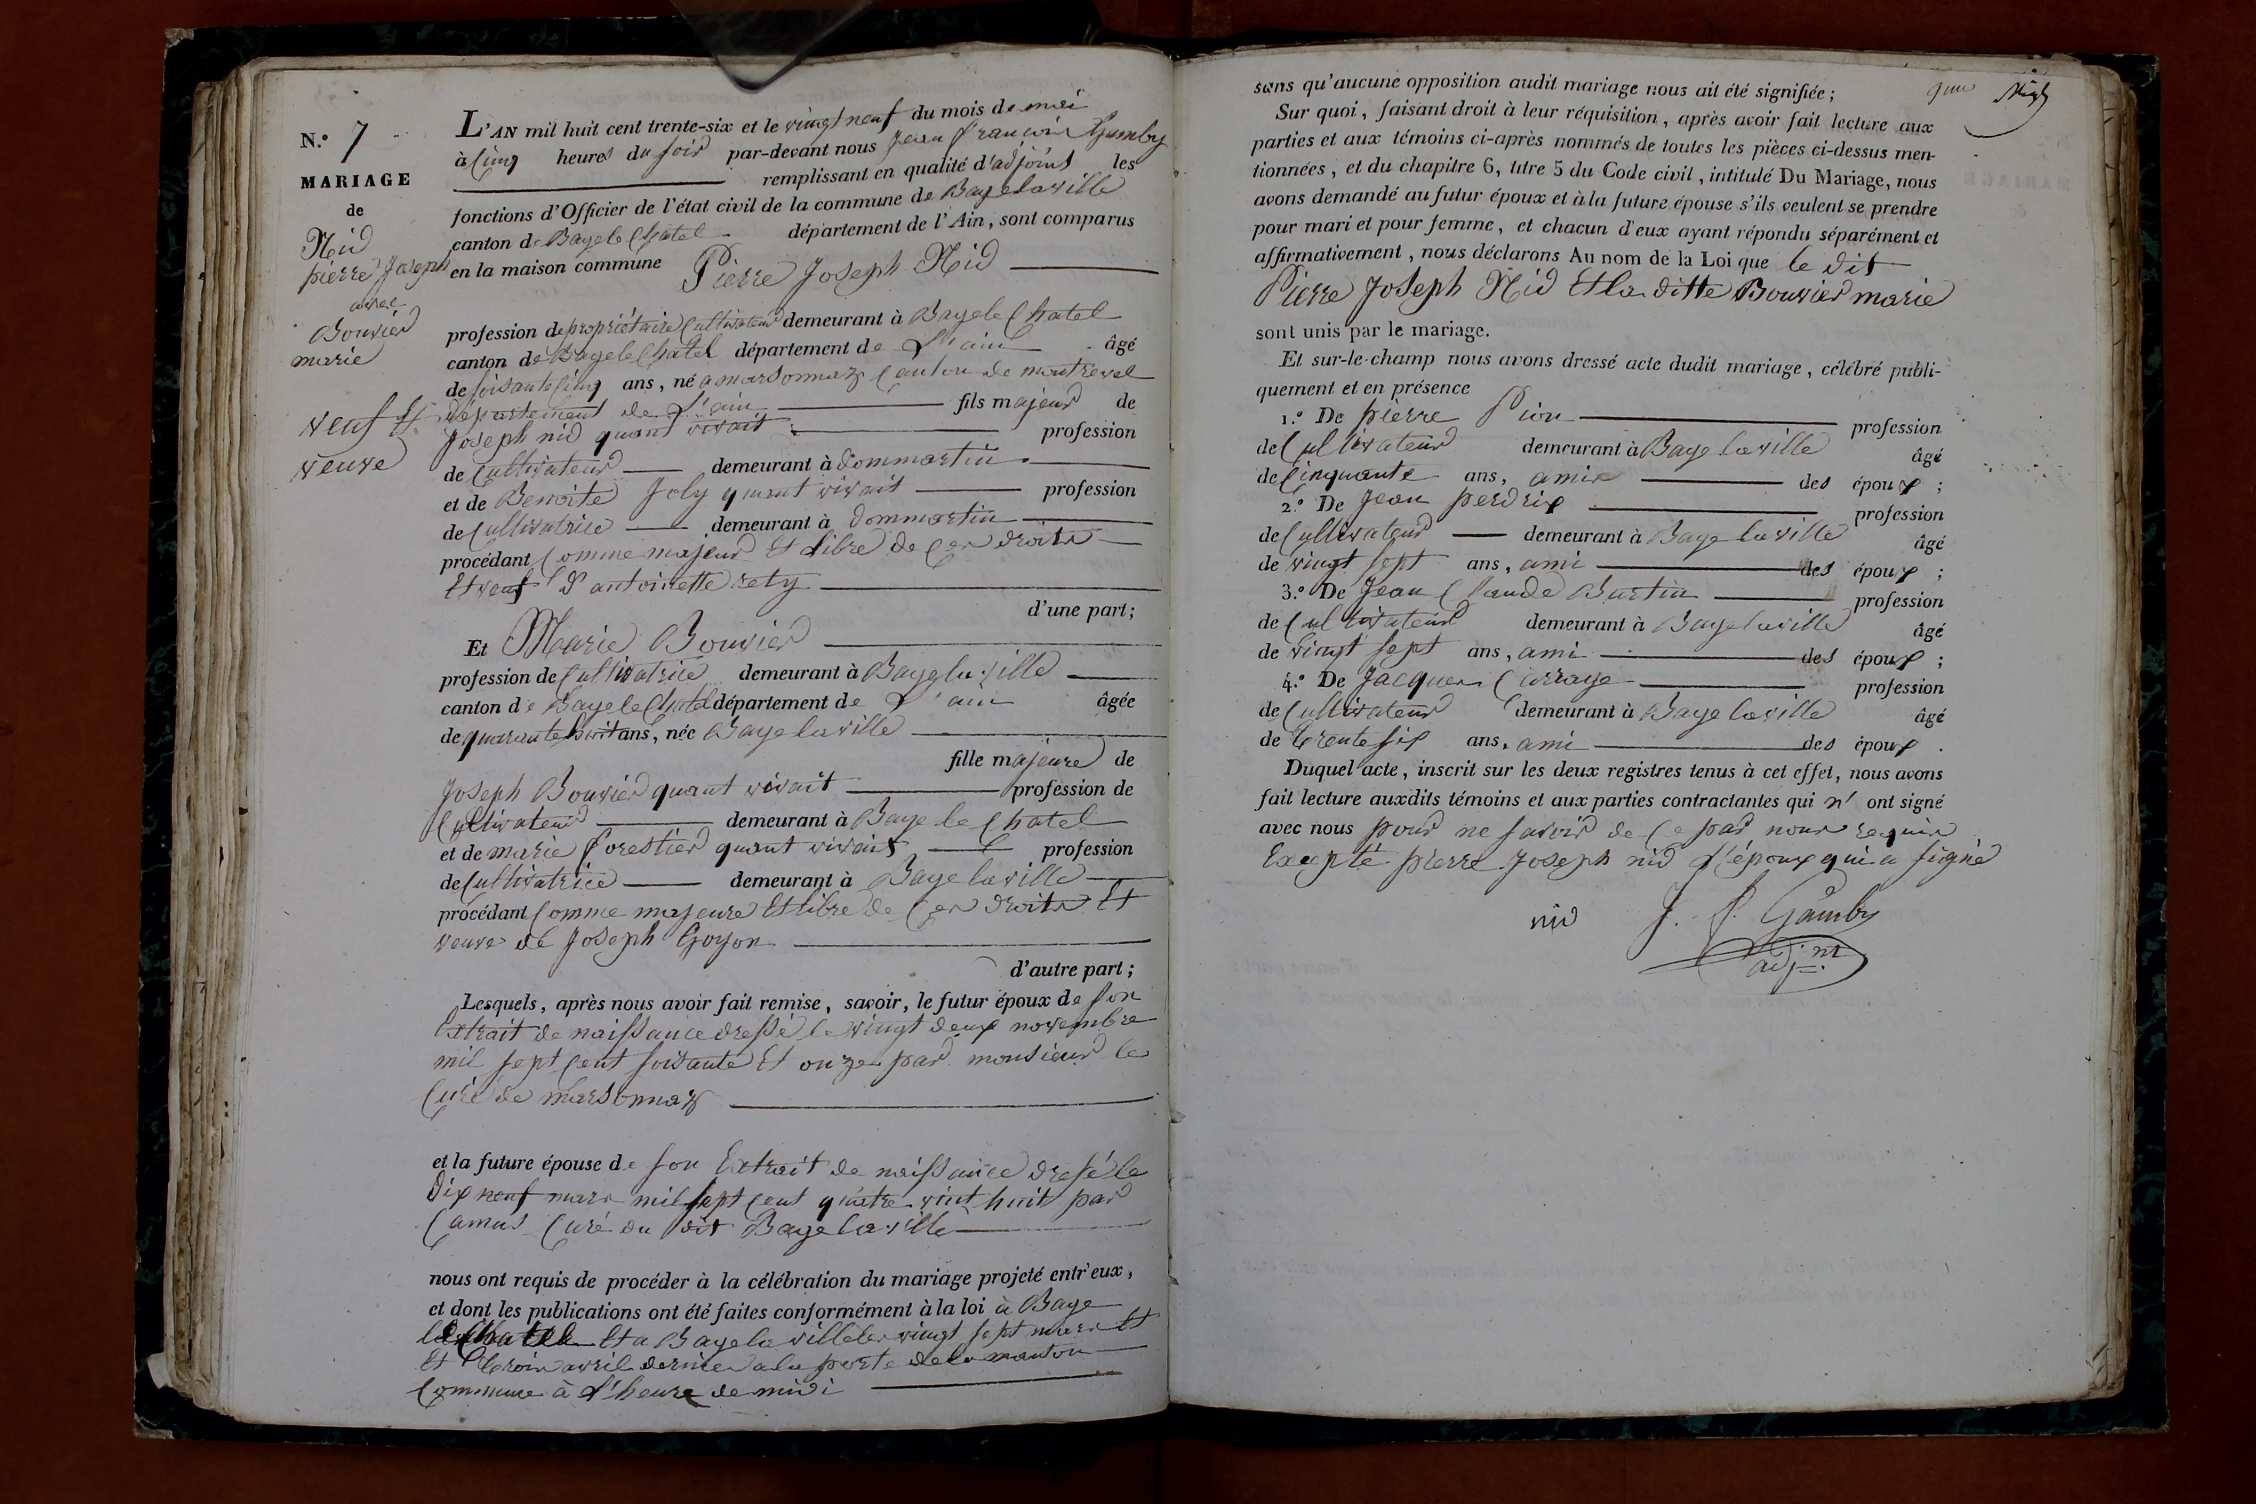 N.º 7
MARIAGE
de
Nid
pierre Joseph
avec
Bouvier
marie
veuf Et
veuve
L'AN mil huit cent trente-six et le vingt neuf du mois de mai
à Cinq heures du soir par-devant nous Jean francois Gamby
remplissant en qualité d'adjoint les
fonctions d'Officier de l'état civil de la commune de Bage la ville
canton de Bage le Chatel département de l'Ain, sont comparus
en la maison commune Pierre Joseph Nid
profession de propriétaire Cultivateur demeurant à Bage le Chatel
canton de Bage le Chatel département de L'ain âgé
de soisante Cinq ans, né a marsonnaz Canton de montrevel
département de L'ain fils majeur de
Joseph nid quant vivait profession
de Cultivateur demeurant à dommartin
et de Benoite Joly quant vivait profession
de Cultivatrice demeurant à dommartin
procédant Comme majeur Et Libre de Ces droits
Et veuf d'antoinette rety
d'une part;
Et Marie Bouvier
profession de Cultivatrice demeurant à Bage la ville
canton de Bage le Chatel département de L'ain âgée
de quarante huit ans, née Bage la ville
fille majeure de
Joseph Bouvier quant vivait profession de
Cultivateur demeurant à Bage le Chatel
et de marie forestier quant vivait profession
de Cultivatrice demeurant à Bage la ville
procédant Comme majeure Et libre de Ces droits Et
veuve de Joseph Goyon
d'autre part;
Lesquels, après nous avoir fait remise, savoir, le futur époux de son
Extrait de naissance dressé le vingt deux novembre
mil sept Cent soisante Et onze par monsieur le
Curé de marsonnaz
et la future épouse de son Extrait de naissance dressé le
dix neuf mars mil sept Cent quatre vint huit par
Camus Curé du dit Bage la ville
nous ont requis de procéder à la célébration du mariage projeté entr'eux,
et dont les publications ont été faites conformément à la loi à Bage
le Chatel Et a Bage la ville les vingt sept mars Et
Et trois avril dernier a la porte de la
Commune à L'heure de midi
sans qu'aucune opposition audit mariage nous ait été signifiée;
Sur quoi, faisant droit à leur réquisition, après avoir fait lecture aux
parties et aux témoins ci-après nommés de toutes les pièces ci-dessus men-
tionnées, et du chapitre 6, titre 5 du Code civil, intitulé Du Mariage, nous
avons demandé au futur époux et à la future épouse s'ils veulent se prendre
pour mari et pour femme, et chacun d'eux ayant répondu séparément et
affirmativement, nous déclarons Au nom de la Loi que le dit
Pierre Joseph Nid Et la ditte Bouvier marie
sont unis par le mariage.
Et sur-le-champ nous avons dressé acte dudit mariage, célébré publi-
quement et en présence
1.º De pierre Pion profession
de Cultivateur demeurant à Bage la ville âgé
de Cinquante ans, amis des époux;
2.º De Jean perdrix profession
de Cultivateur demeurant à Bage la ville âgé
de vingt sept ans, ami des époux;
3.º De Jean Claude Burtin profession
de Cultivateur demeurant à Bage la ville âgé
de vingt sept ans, ami des époux;
4.º De Jacques profession
de Cultivateur demeurant à Bage la ville âgé
de trente six ans, ami des époux.
Duquel acte, inscrit sur les deux registres tenus à cet effet, nous avons
fait lecture auxdits témoins et aux parties contractantes qui n' ont signé
avec nous pour ne savoir de Ce par nous requis
Excepté pierre Joseph nid L'époux qui a signé
nid J. f. Gamby
adj.nt